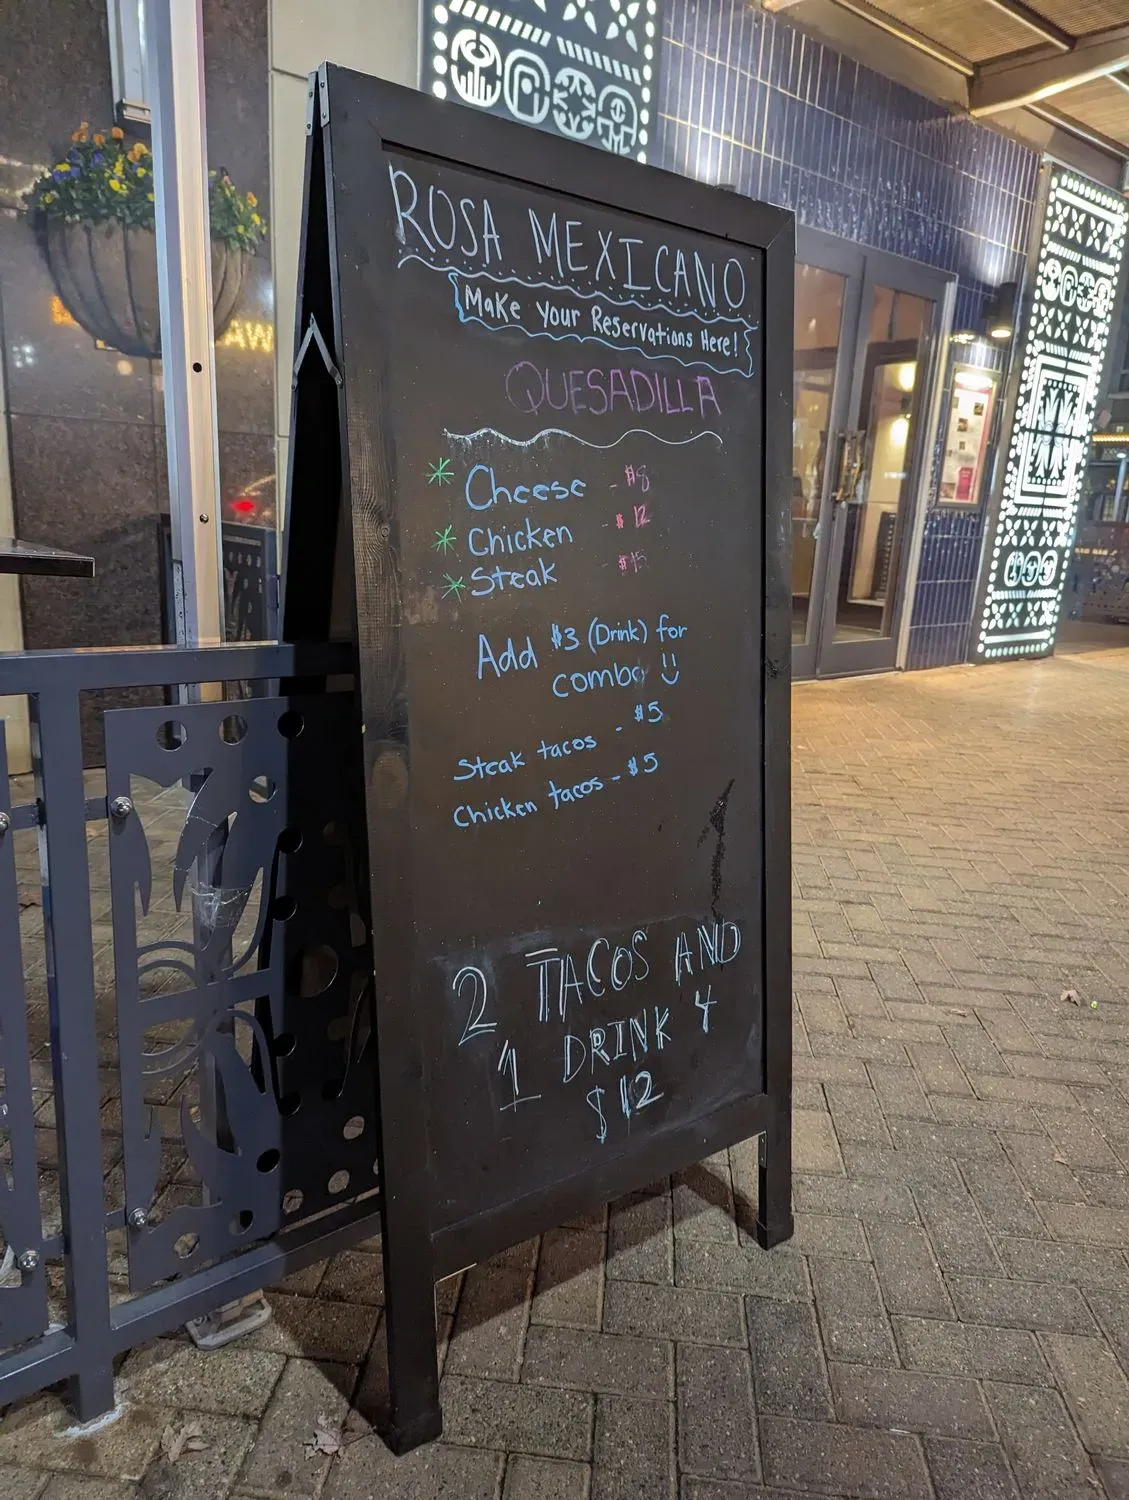 ROSA MEXICANO
Make Your Reservations Here!
QUESADILLA
* Cheese - $8
* Chicken - $12
* Steak $15
Add $3 (Drink) for
combo :)
Steak tacos - $5
Chicken tacos - $5
2 TACOS AND
1 DRINK 4
$12